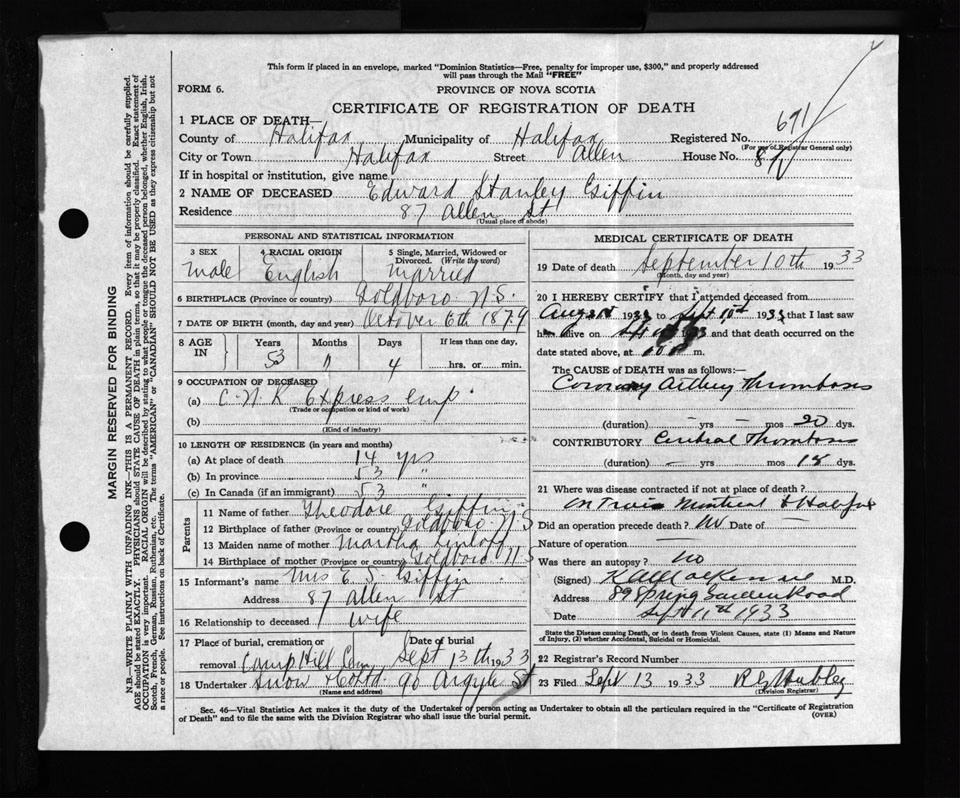 This form if placed in an envelope, marked "Dominion Statistics—Free, penalty for improper use, $300," and properly addressed
will pass through the Mail "FREE"
FORM 6.
PROVINCE OF NOVA SCOTIA
CERTIFICATE OF REGISTRATION OF DEATH
1 PLACE OF DEATH—
County of Halifax Municipality of Halifax Registered No. 691
(For use of Registrar General only)
City or Town Halifax Street Allen House No. 87
If in hospital or institution, give name
2 NAME OF DECEASED Edward Stanley Giffin
Residence 87 Allen St
(Usual place of abode)
PERSONAL AND STATISTICAL INFORMATION
3 SEX Male
4 RACIAL ORIGIN English
5 Single, Married, Widowed or Divorced. (Write the word) Married
6 BIRTHPLACE (Province or country) Goldboro N.S.
7 DATE OF BIRTH (month, day and year) October 6th 1879
8 AGE IN Years 53 Months Days 4 If less than one day, hrs. or min.
9 OCCUPATION OF DECEASED
(a) C.N.R Express emp
(Trade or occupation or kind of work)
(b)
(Kind of industry)
10 LENGTH OF RESIDENCE (in years and months)
(a) At place of death 14 yrs
(b) In province 53 "
(c) In Canada (if an immigrant) 53 "
Parents
11 Name of father Theodore Giffin
12 Birthplace of father (Province or country) Goldboro N.S
13 Maiden name of mother Martha
14 Birthplace of mother (Province or country) Goldboro N S
15 Informant's name Mrs E. S. Giffin
Address 87 Allen St
16 Relationship to deceased wife
17 Place of burial, cremation or removal Camp Hill Cem Date of burial Sept 13th 1933
18 Undertaker Snow & Co Ltd 90 Argyle St
(Name and address)
MEDICAL CERTIFICATE OF DEATH
19 Date of death September 10th 1933
(Month, day and year)
20 I HEREBY CERTIFY that I attended deceased from
1933 to Sept 10th 1933 that I last saw
h alive on 1933 and that death occurred on the
date stated above, at m.
The CAUSE of DEATH was as follows:—
Coronary Artery Thrombosis
(duration) — yrs — mos 20 dys.
CONTRIBUTORY Cerebral Thrombosis
(duration) — yrs mos 18 dys.
21 Where was disease contracted if not at place of death?
on Train Montreal & Halifax
Did an operation precede death? No Date of —
Nature of operation
Was there an autopsy? no
(Signed) M.D.
Address 89 Spring Garden Road
Date Sept 11th 1933
State the Disease causing Death, or in death from Violent Causes, state (1) Means and Nature
of Injury, (2) whether Accidental, Suicidal or Homicidal.
22 Registrar's Record Number
23 Filed Sept 13 1933
(Division Registrar)
Sec. 46—Vital Statistics Act makes it the duty of the Undertaker or person acting as Undertaker to obtain all the particulars required in the "Certificate of Registration
of Death" and to file the same with the Division Registrar who shall issue the burial permit.
(OVER)
MARGIN RESERVED FOR BINDING
N.B—WRITE PLAINLY WITH UNFADING INK—THIS IS A PERMANENT RECORD. Every item of information should be carefully supplied.
AGE should be stated EXACTLY. PHYSICIANS should STATE CAUSE OF DEATH in plain terms, so that it may be properly classified. Exact statement of
OCCUPATION is very important. RACIAL ORIGIN will be described by stating to what people or tongue the deceased person belonged, whether English, Irish,
Scotch, French, German, Russian, Ruthenian, etc. The terms "AMERICAN" or "CANADIAN" SHOULD NOT BE USED as they express citizenship but not
a race or people. See instructions on back of Certificate.